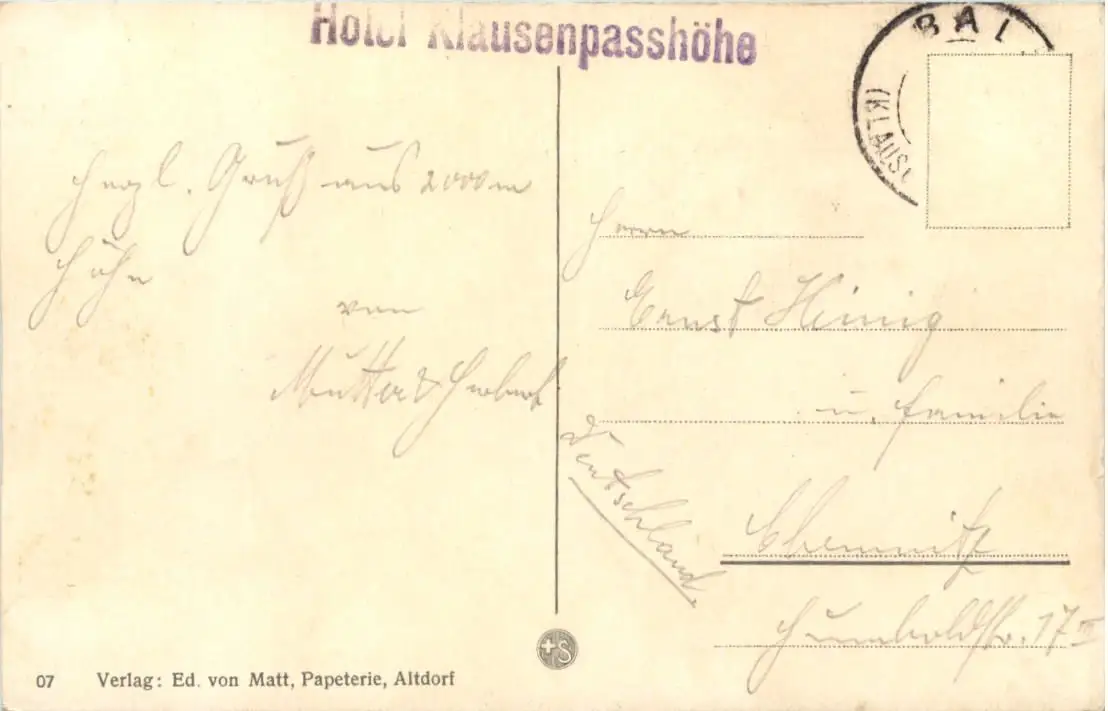 Hotel Klausenpasshöhe
BAL
(KLAUS
Herzl. Gruß aus 2000m
Höhe
von
Mutter & Herbert
Herrn
Ernst Heinig
u. Familie
Deutschland.
Chemnitz
Humboldtstr. 17 II
+S
07 Verlag: Ed. von Matt, Papeterie, Altdorf